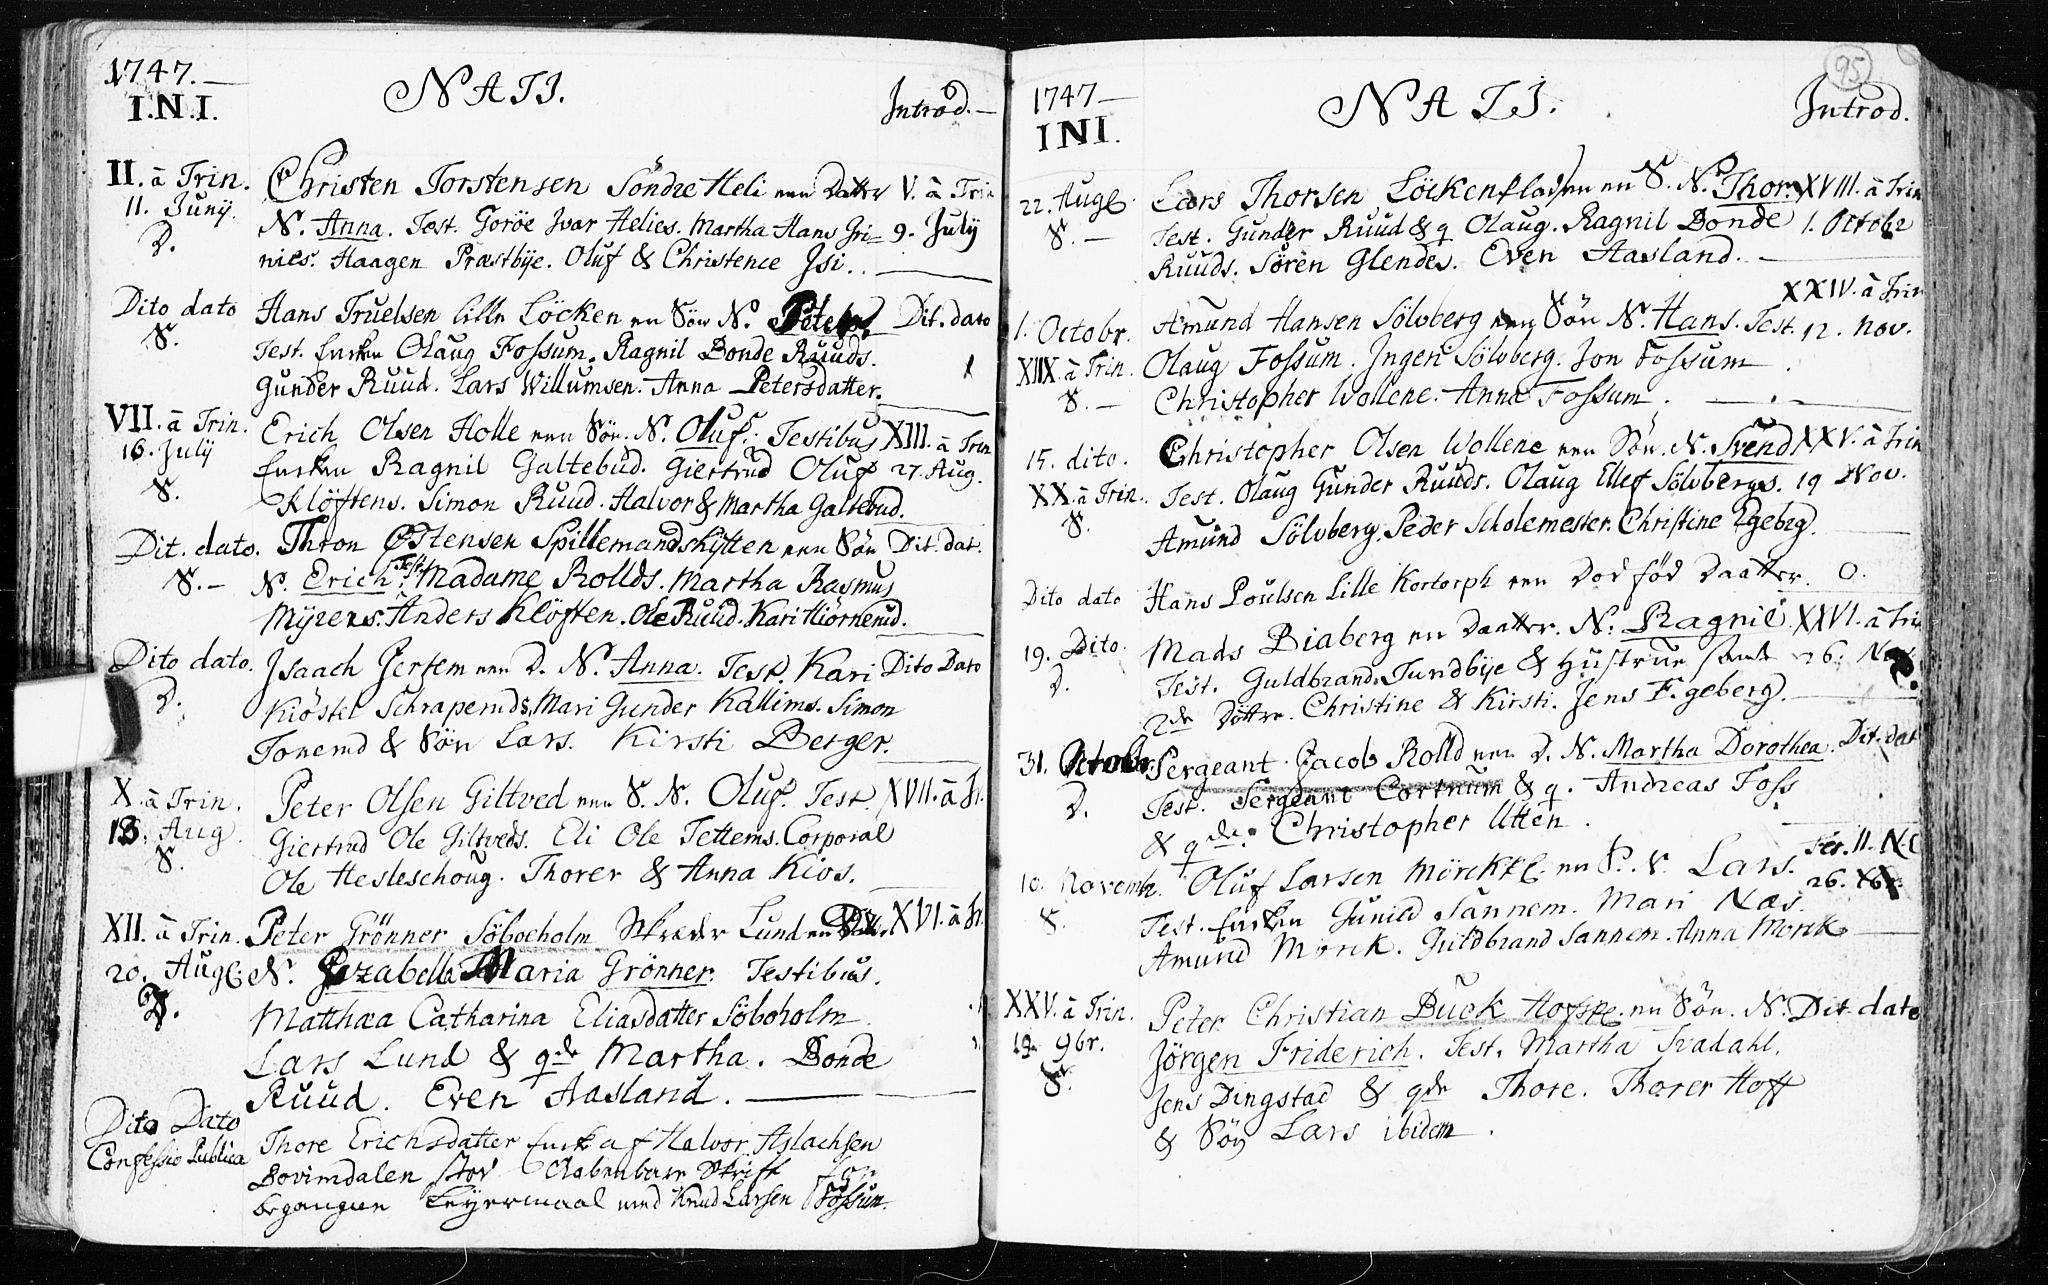 1747.
I.N.I.
NATI.
Introd.
II. à Trin.
11. Junij.
D.
Christen Torstensen Söndre Heli een Datter
N. Anna. Test. Goröe Ivar Helies. Martha Hans Gri-
nies. Haagen Præstbÿe. Oluf & Christence Isi.
V. à Trin
9. July
Dito dato
S.
Hans Truelsen lille Löcken en Sön N. Peter.
Test. Enken Olaug Fossum. Ragnil Bonde Ruuds.
Gunder Ruud. Lars Willumsen. Anna Petersdatter.
Dit. dato
VII. à Trin.
16. July
S.
Erich Olsen Holle een Sön. N. Oluf. Testibus
Enken Ragnil Galtebud. Giertrud Oluf
Klöftens. Simon Ruud. Halvor & Martha Galtebud.
XIII. à Trin
27. Aug.
Dit. dato.
S.
Thron Östensen Spillemandshÿtten een Sön
N. Erich. Test. Madame Rollds. Martha Rasmus
Mÿrens. Anders Klöften. Ole Ruud. Kari Hiörnerud.
Dit. dat.
Dito dato.
D.
Isaach Jersem een D. N. Anna. Test. Kari
Kiöstel Schraperuds, Mari Gunder Kallims. Simon
Tonerud & Sön Lars. Kirsti Berger.
Dito Dato
X. à Trin.
13. Aug.
S.
Peter Olsen Giltved een S. N. Oluf. Test.
Giertrud Ole Giltveds. Eli Ole Tettems. Corporal
Ole Hesleschoug. Thorer & Anna Kios.
XVII. à Tr.
XII. à Trin.
20. Aug.
D.
Peter Grönner Söboeholm Skræder Lund en Datter
N. Jezabelle Maria Grönner. Testibus.
Matthæa Catharina Eliasdatter Söboholm
Lars Lund & qde Martha. Bonde
Ruud. Even Aasland.
XVI. à Tr.
Dito Dato
Confessio Publica
Thore Erichsdatter Enke af Halvor Aslachsen
Bovimdalen stod Aabenbare Skrift for
begangen Leÿermaal med Knud Larsen Fossum.
95
1747
INI.
NATI.
Introd.
22. Aug.
S.
Lars Thorsen Löckenpladsen en S. N. Thor.
Test. Gunder Ruud & q Olaug. Ragnil Bonde
Ruuds. Sören Glendes. Even Aasland.
XVIII. à Trin
1. Octobr
1. Octobr.
XIIX. à Trin.
S.
Amund Hansen Sölvberg een Sön N. Hans. Test.
Olaug Fossum. Ingeri Sölvberg. Jon Fossum
Christopher Wollene. Anna Fossum.
XXIV. à Trin
12. Nov.
15. dito.
XX. à Trin.
S.
Christopher Olsen Wollene een Sön. N. Svend
Test. Olaug Gunder Ruuds. Olaug Ellef Sölvbergs.
Amund Sölvberg. Peder Scholemester. Christine Egebrg.
XXV. à Trin
19 Nov.
Dito dato
Hans Poulsen Lille Kortorph een Död föd Daatter.
0.
19. Dito.
D.
Mads Biaberg en Daatter. N. Ragnil.
Test. Guldbrand Tundbÿe & Hustrue samt
2de Döttre. Christine & Kirsti. Jens Egeberg.
XXVI. à Trin
26. Nov.
31. Octobr.
D.
Sergeant Jacob Rolld een D. N. Martha Dorothea.
Test. Sergeant Cortnum & q. Andreas Foss
& qde. Christopher Utten.
Dit. dat
10. Novemb.
S.
Oluf Larsen Mörck en S. N. Lars.
Test. Enken Gunild Sannem. Mari Næs.
Amund Mörck. Guldbrand Sannem. Anna Mörck
Fer. II. N.
26. Xbr
XXV. à Trin.
19. 9br.
S.
Peter Christian Buck Hofsl. en Sön. N.
Jörgen Friderich. Test. Martha Tvadahl.
Jens Dingstad & qde Thore. Thorer Hoff
& Sön Lars ibidem.
Dit dato